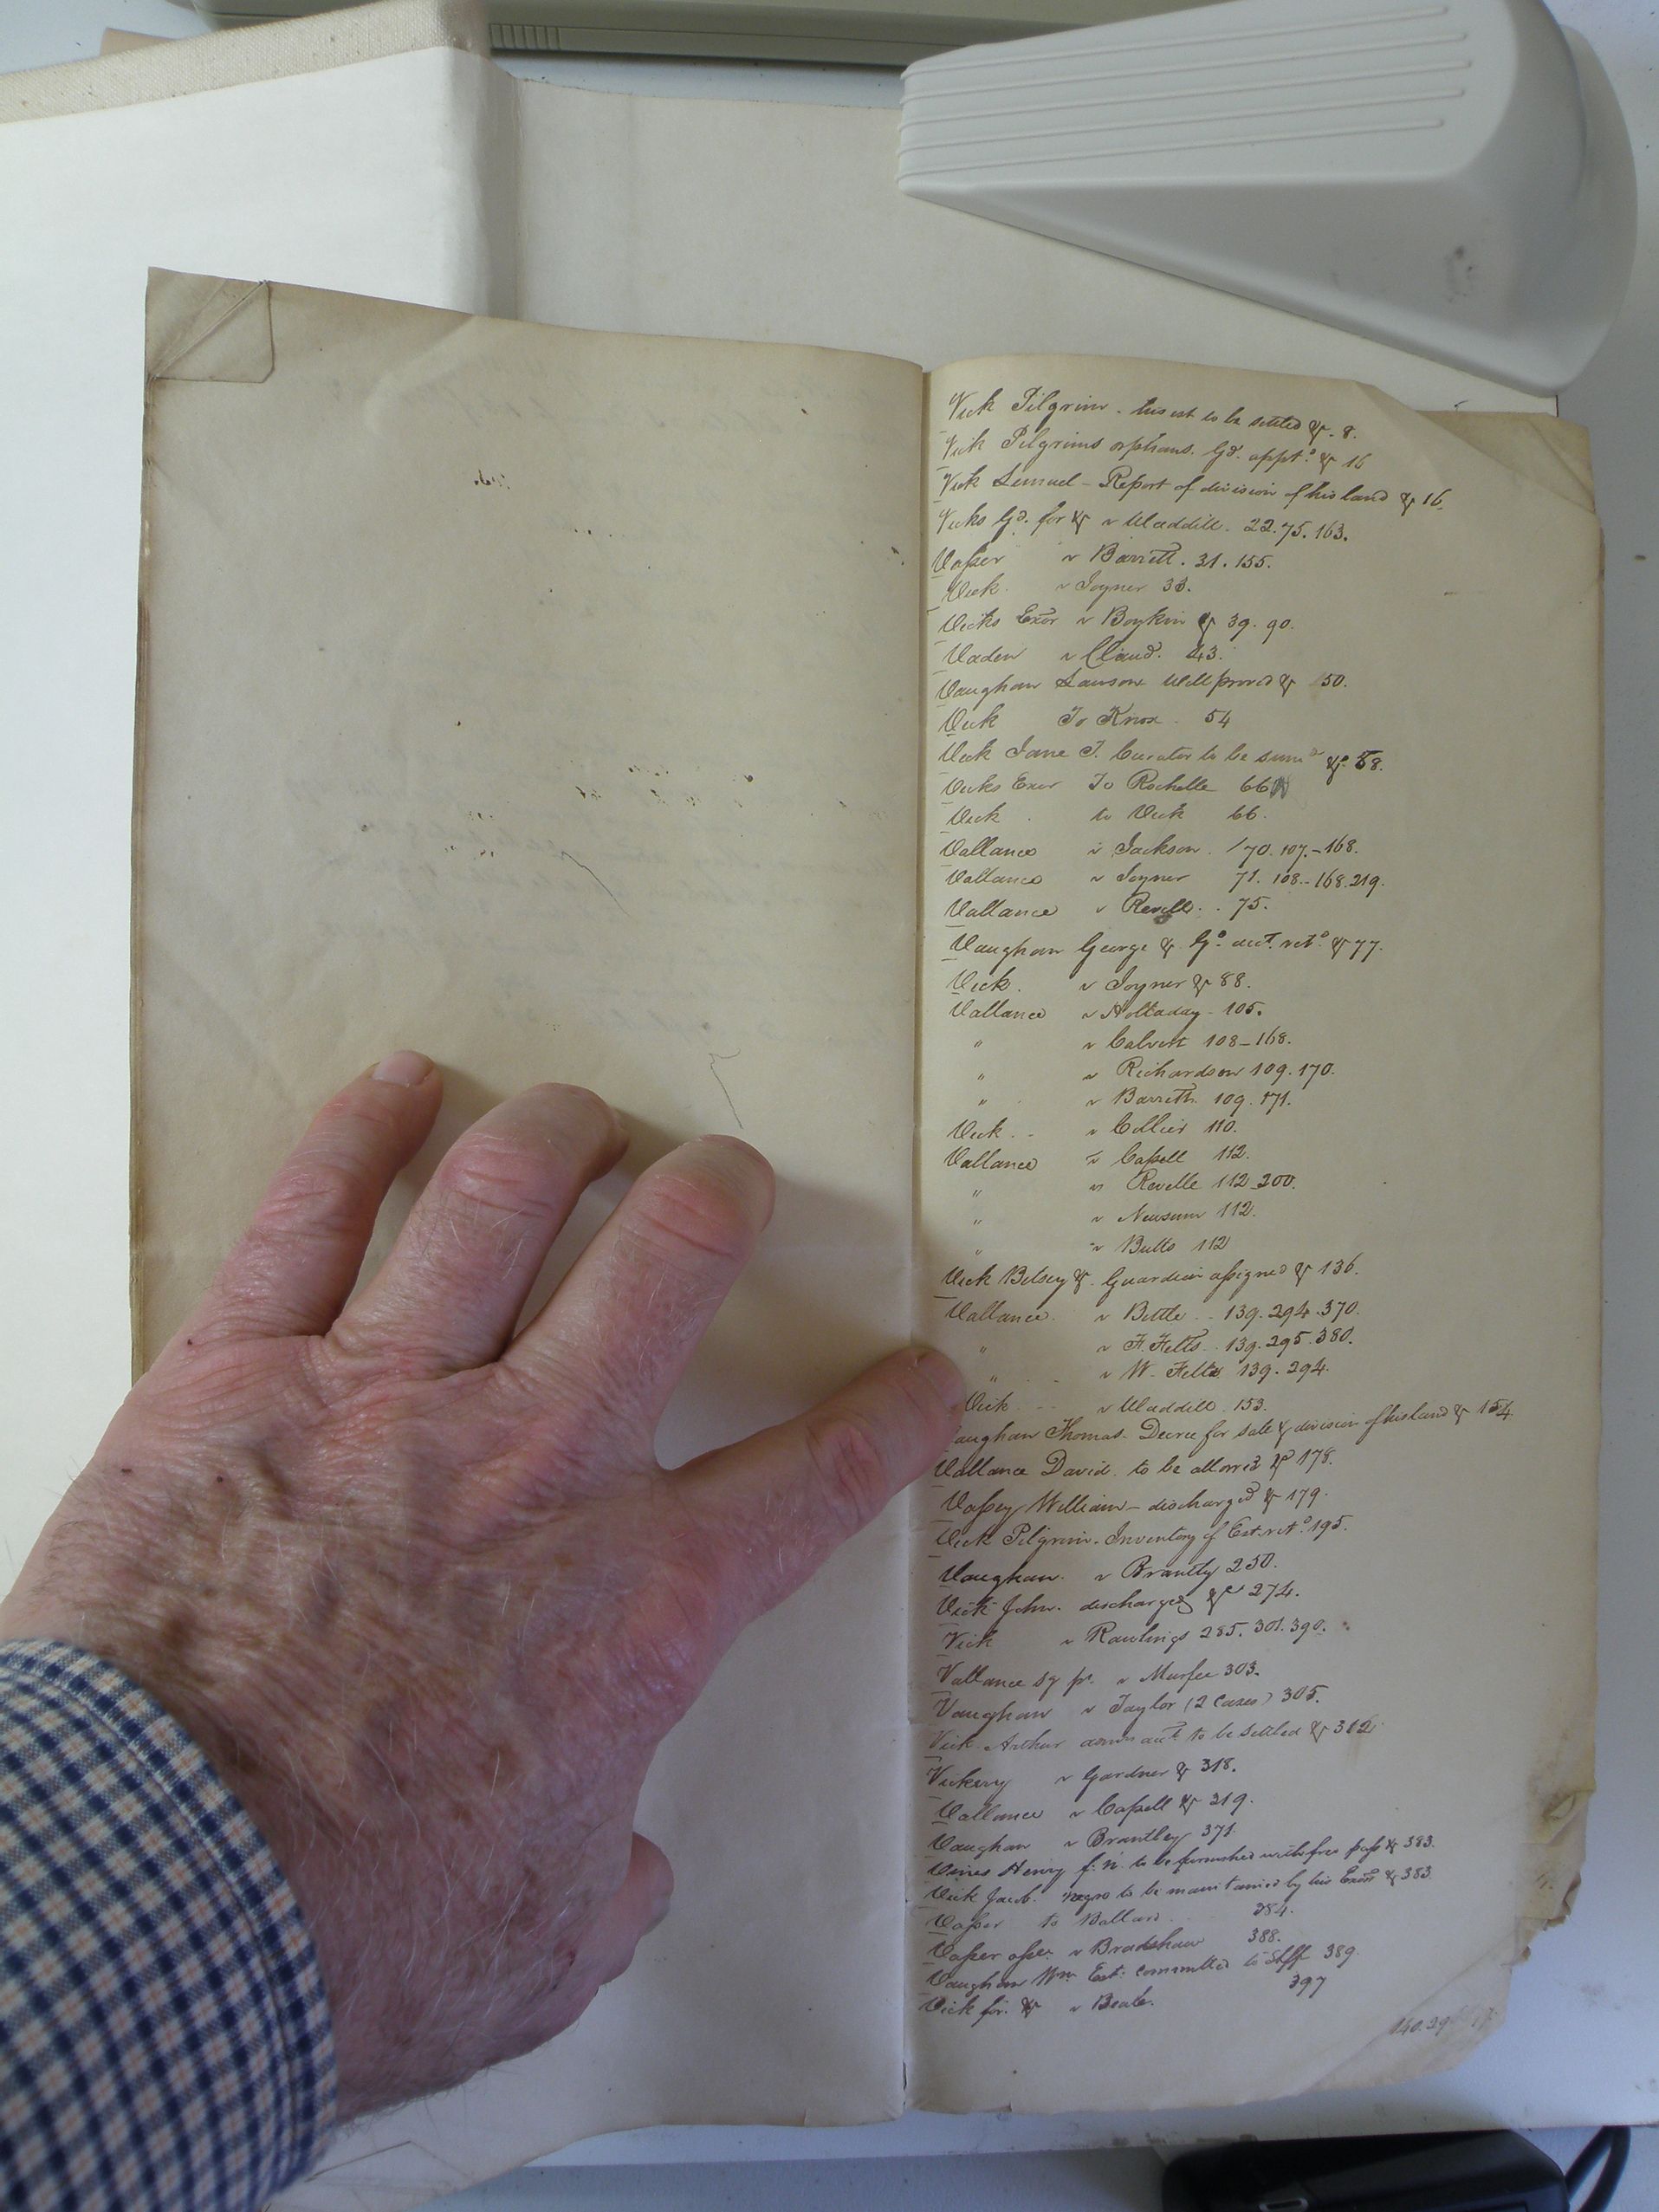 Vick Pilgrim - his est to be settled &c. 8.
Vick Pilgrims orphans. Gd. appt.d &c 16
Vick Lemuel - Report of division of his land &c 16.
Vicks Gd. for &c v Waddill. 22. 75. 163.
Vasser v Barrett. 31. 155.
Vick v Joyner 33.
Vicks Exor v Boykin &c 39. 90.
Vaden v Claud. 43.
Vaughan Lawson Will proved &c 50.
Vick To Knox. 54
Vick Jane T. Curator to be summd &c. 58.
Vicks Exor To Rochelle 66
Vick to Vick 66.
Vallance v Jackson. 70. 107. - 168.
Vallance v Joyner 71. 108. - 168. 219.
Vallance v Revell. . 75.
Vaughan George & Gd. acct. retd. &c 77.
Vick. v Joyner &c 88.
Vallance v Holladay - 105.
" v Calvert 108 - 168.
" v Richardson 109. 170.
" v Barrett. 109. 171.
Vick. - v Collier 110.
Vallance v Capell 112.
" v Revelle 112_200.
" v Newsum 112.
" v Butts 112
Vick Betsey &c. Guardian assigned &c 136.
Vallance. v Bittle . . 139. 294. 370.
" v F. Felts. . 139. 295. 380.
" v W. Felts. 139. 294.
Vick v Waddill. 153.
aughan Thomas - Decree for sale & division of his land &c 154
Vallance David. to be allowed &c 178.
Vassey William - discharged &c 179.
Vick Pilgrim. Inventory of Est. retd. 195.
Vaughan. v Brantly 250.
Vick John. discharged &c 274.
Vick v Rawlings 285. 301. 390.
Vallance sg pr. v Murfee 303.
Vaughan v Taylor (2 Cases) 305.
Vick Arthur admr acct to be settled &c 312
Vickery v Gardner &c 318.
Vallance v Capell &c 319.
Vaughan v Brantley 371.
Vines Henry f. n. to be furnished with free pass &c 383.
Vick Jacob. negro to be maintained by his Exors &c 383
Vasser to Ballard. 384.
Vasser assee. v Bradshaw 388.
Vaughan Wm Est: committed to Shff 389.
Vick for. &c v Beale. 397
140. 29